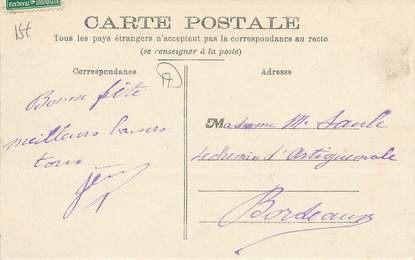 1St
CARTE POSTALE
Tous les pays étrangers n'acceptent pas la correspondance au recto
(se renseigner à la poste)
Correspondance
17
Adresse
Bonne fête
meilleurs baisers
tous
Madame M. Saule
chemin d'
Bordeaux